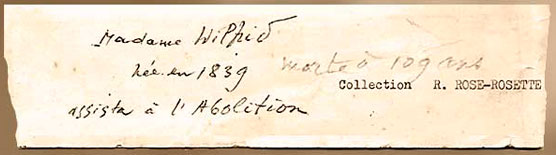 Madame Wilfrid
née en 1839 morte à 109 ans
Collection R. ROSE-ROSETTE
assista à l'Abolition